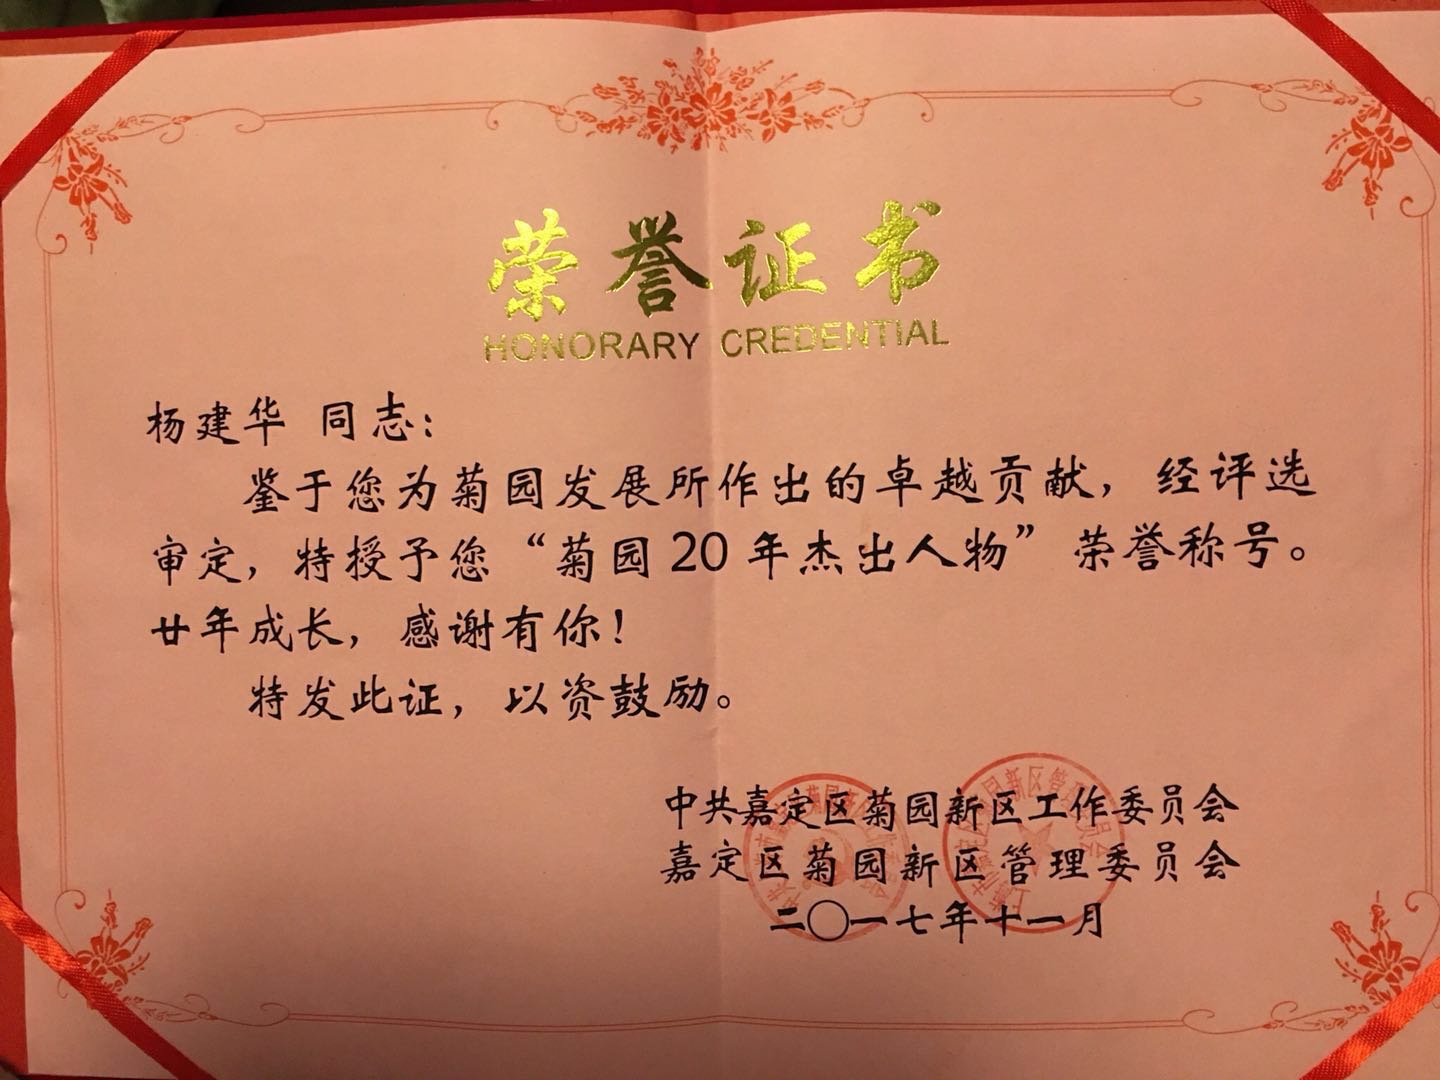 荣誉证书
HONORARY CREDENTIAL
杨建华 同志：
鉴于您为菊园发展所作出的卓越贡献，经评选
审定，特授予您“菊园20年杰出人物”荣誉称号。
廿年成长，感谢有你！
特发此证，以资鼓励。
中共嘉定区菊园新区工作委员会
嘉定区菊园新区管理委员会
二〇一七年十一月